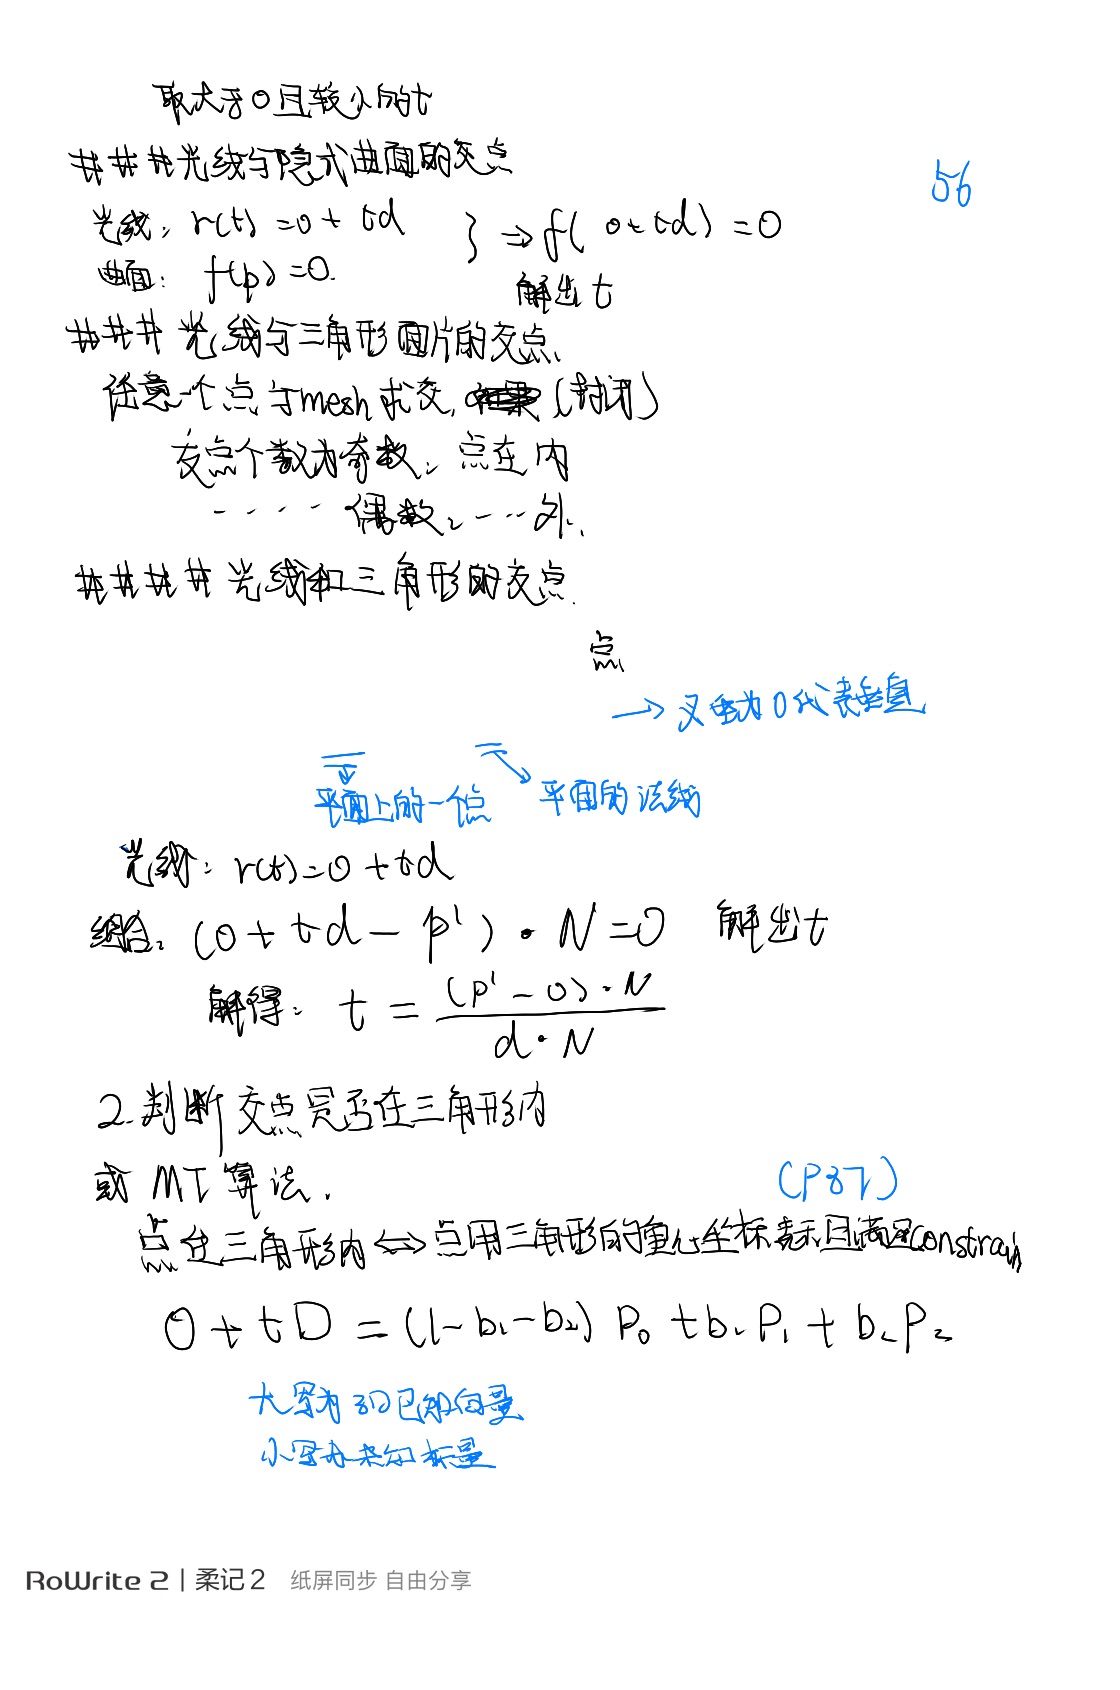 取大于0且较小的t
###光线与隐式曲面的交点
56
光线: r(t)=o+td
} ⇒ f(o+td)=0
曲面: f(p)=0.
解出t
### 光线与三角形面片的交点.
任意一个点与mesh求交, (封闭)
交点个数为奇数, 点在内
- - - - 偶数, - - - 外.
#### 光线和三角形的交点.
点
→ 叉乘为0代表垂直
平面上的一个点
平面的法线
光线: r(t)=o+td
组合: (o+td-p')·N=0 解出t
解得: t = \frac{(p'-o)·N}{d·N}
2.判断交点是否在三角形内
或 MT算法.
(P87)
点在三角形内⇔点用三角形的重心坐标表示且满足constrain
O+tD=(1-b₁-b₂)P₀+b₁P₁+b₂P₂
大写为3D已知向量
小写为未知标量
RoWrite 2 | 柔记2 纸屏同步 自由分享